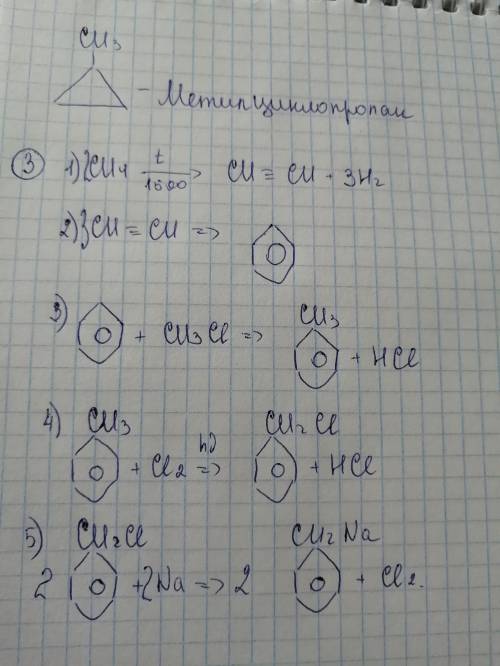 CH3
– Метилциклопропан
③ 1) 2CH4 t 1500 → CH ≡ CH + 3H2
2) 3CH ≡ CH =>
3) + CH3Cl => CH3 + HCl
4) CH3 + Cl2 hν => CH2Cl + HCl
5) CH2Cl CH2Na
2 + 2Na => 2 + Cl2.